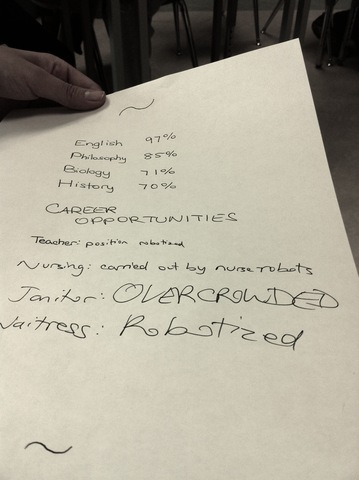 English 97%
Philosophy 85%
Biology 71%
History 70%
CAREER
OPPORTUNITIES
Teacher: position robotized
Nursing: carried out by nurse robots
Janitor: OVERCROWDED
Waitress: Robotized